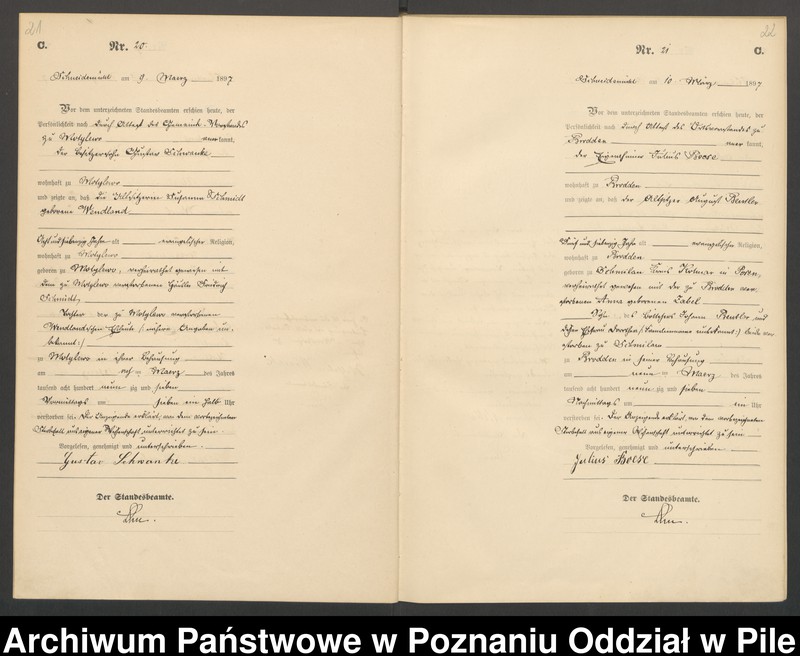 21
C.
Nr. 20.
Schneidemühl am 9. Maerz 1897
Vor dem unterzeichneten Standesbeamten erschien heute, der
Persönlichkeit nach durch Attest des Gemeinde-Vorstandes
zu Motylewo kannt,
der Besitzersohn Gustav Schwanke
wohnhaft zu Motylewo
und zeigte an, daß die Altsitzerin Susanna Schmidt
geborene Wendland
Achtundsiebzig Jahre alt evangelischer Religion,
wohnhaft zu Motylewo
geboren zu Motylewo, verheirathet gewesen mit
dem zu Motylewo verstorbenen
Schmidt,
Tochter der zu Motylewo verstorbenen
Wendlandschen Eheleute /: nähere Angaben un-
bekannt :/
zu Motylewo in ihrer Behausung
am Maerz des Jahres
tausend acht hundert neunzig und sieben
Vormittags um sieben ein halb Uhr
verstorben sei. Der Anzeigende erklärt, von dem vorbezeichneten
Sterbefall aus eigener Wissenschaft unterrichtet zu sein.
Vorgelesen, genehmigt und unterschrieben.
Gustav Schwanke
Der Standesbeamte.
22
Nr. 21
C.
Schneidemühl am 10. März 1897
Vor dem unterzeichneten Standesbeamten erschien heute, der
Persönlichkeit nach durch Attest des Ortsvorstandes zu
Brodden kannt,
der Eigenthümer Julius Boese
wohnhaft zu Brodden
und zeigte an, daß der Altsitzer August Bentler
Fünf und siebenzig Jahre alt evangelischer Religion,
wohnhaft zu Brodden
geboren zu Schmilau Kreis Kolmar in Posen,
verheirathet gewesen mit der zu Brodden ver-
storbenen Anna geborenen Zabel
Sohn des Johann Bentler und
dessen Ehefrau Dorothea /: Familienname unbekannt :/ beide ver-
storben zu Schmilau
zu Brodden in seiner Behausung
am neun Maerz des Jahres
tausend acht hundert neunzig und sieben
Nachmittags um ein Uhr
verstorben sei. Der Anzeigende erklärt, von dem vorbezeichneten
Sterbefall aus eigener Wissenschaft unterrichtet zu sein.
Vorgelesen, genehmigt und unterschrieben
Julius Boese
Der Standesbeamte.
Archiwum Państwowe w Poznaniu Oddział w Pile